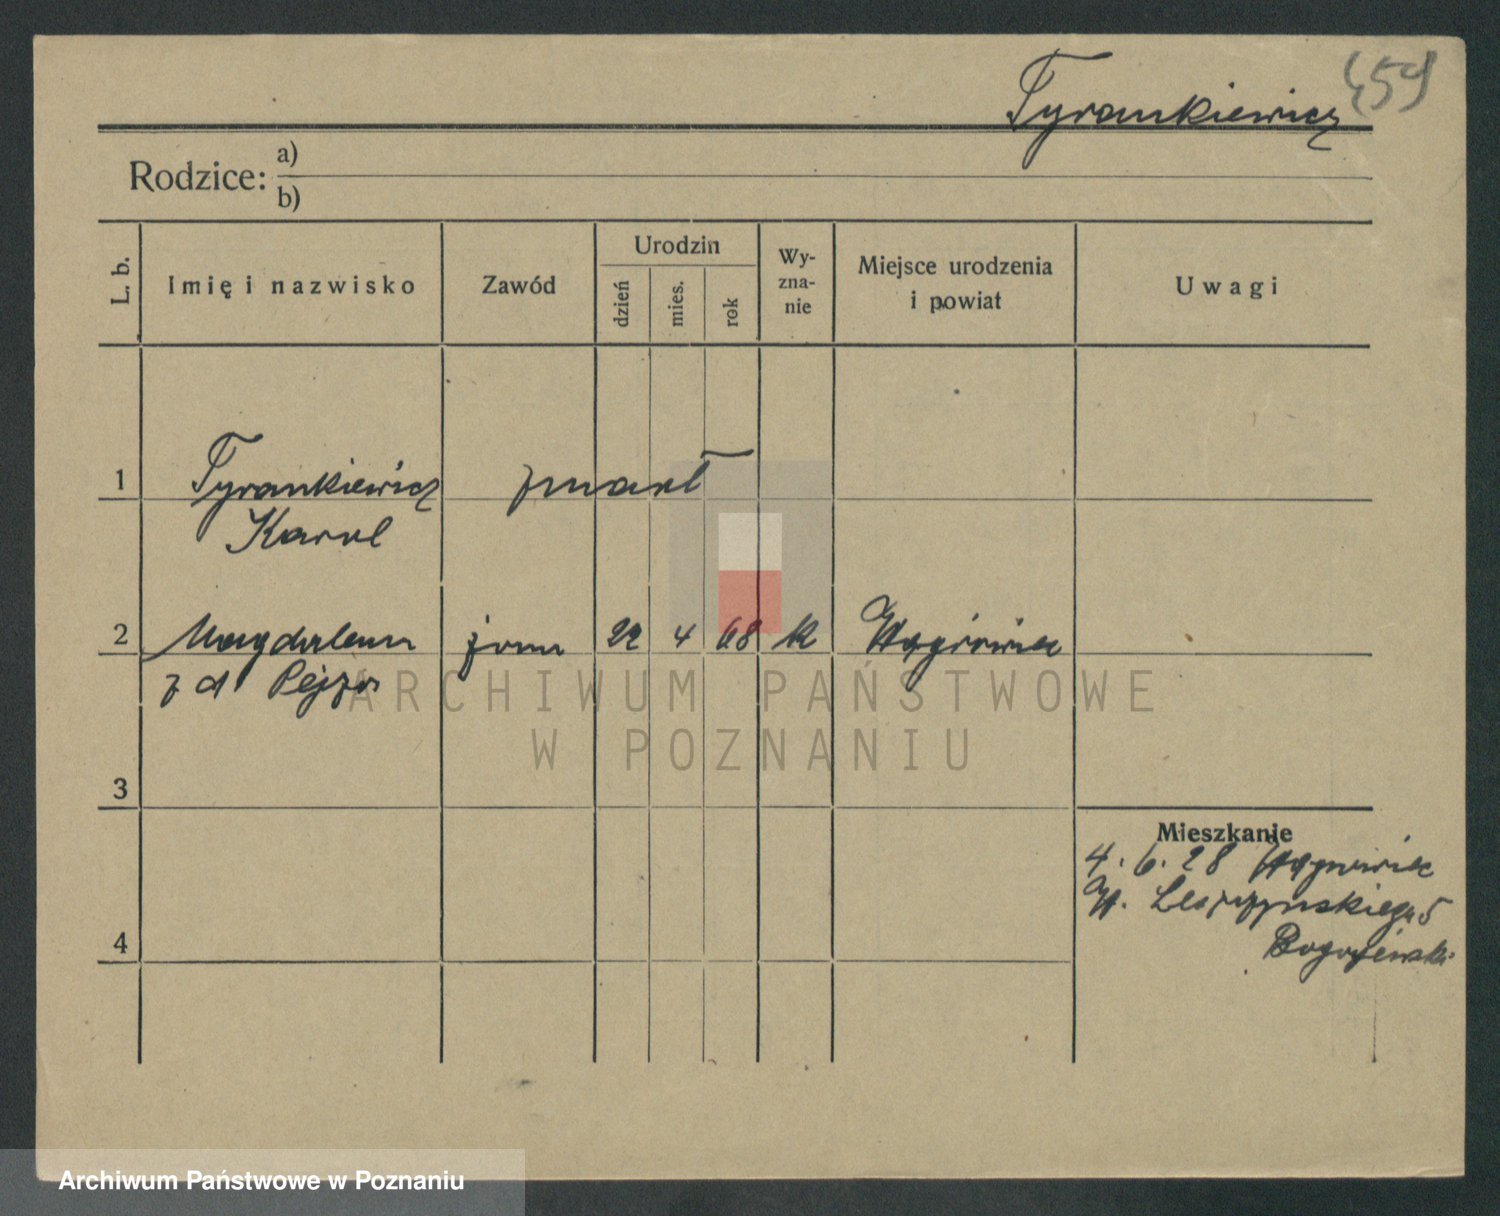 Tyrankiewicz 459
Rodzice: a)
b)
L. b. Imię i nazwisko Zawód Urodzin dzień mies. rok Wy-zna-nie Miejsce urodzenia i powiat Uwagi
1 Tyrankiewicz zmarł
Karol
2 Magdalena żona 22 4 68 k Wągrówiec
z d Pejza
3
Mieszkanie
4. 6. 28 Wągrowiec
Leszczynskiego 5
4
ARCHIWUM PAŃSTWOWE
W POZNANIU
Archiwum Państwowe w Poznaniu